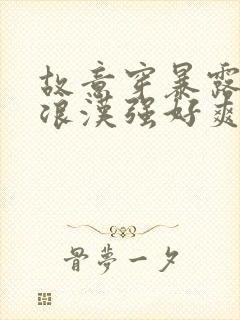 故意穿暴露
浪漢强好爽
骨夢一夕